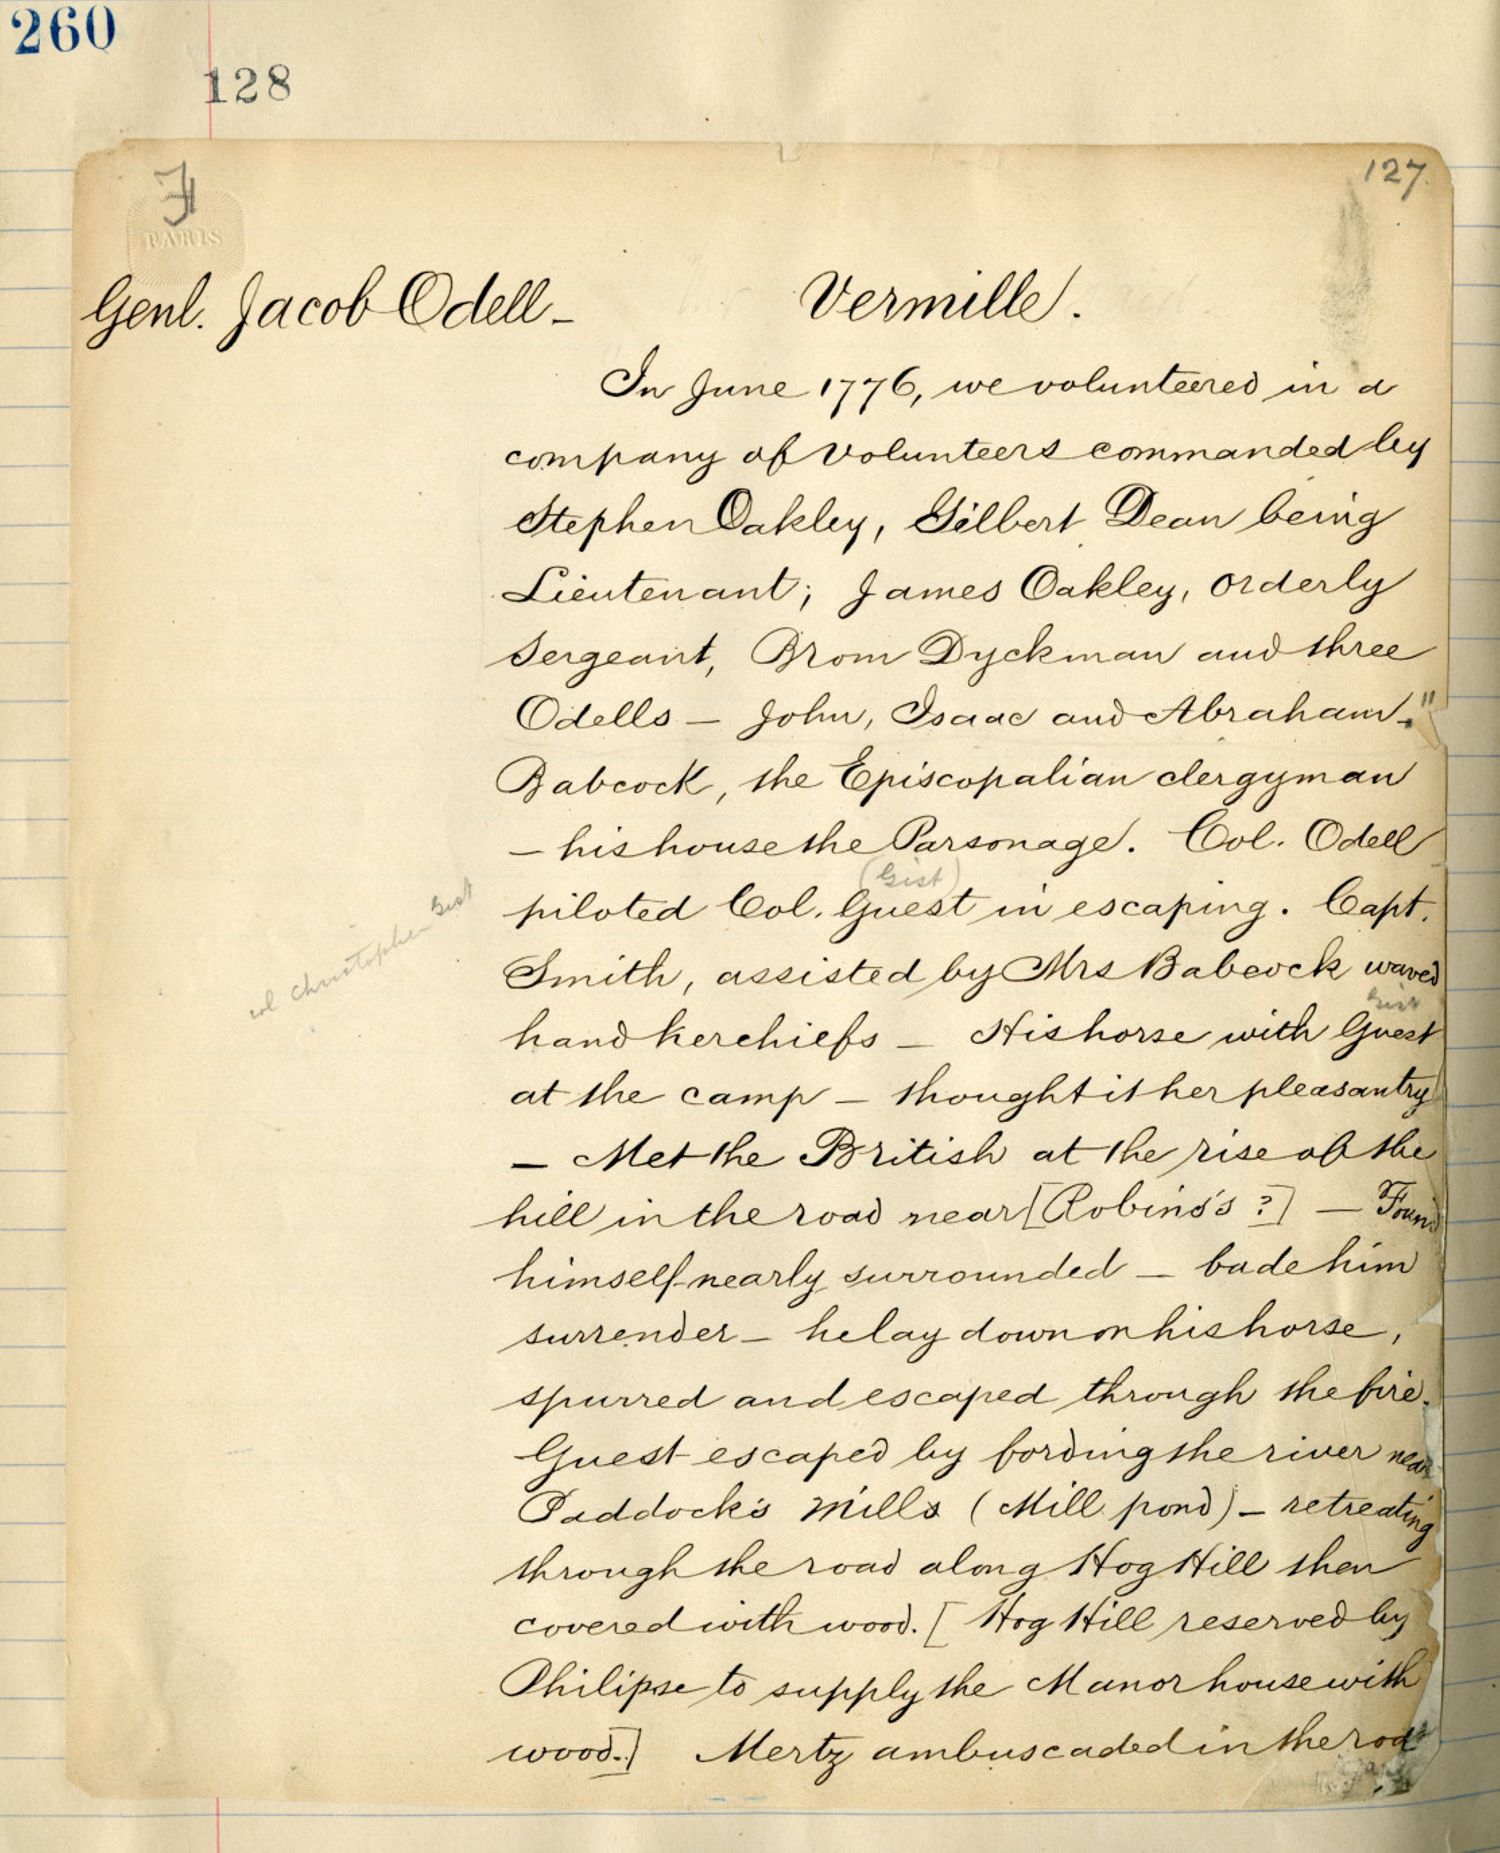 260
128
127
PARIS
Genl. Jacob Odell - Vermille.
In June 1776, we volunteered in a
company of volunteers commanded by
Stephen Oakley, Gilbert Dean being
Lieutenant; James Oakley, orderly
sergeant, Brom Dyckman and three
Odells - John, Isaac and Abraham."
Babcock, the Episcopalian clergyman
- his house the Parsonage. Col. Odell
(Gist)
piloted Col. Guest in escaping. Capt.
col Christopher Gist
Smith, assisted by Mrs Babcock waved
Gist
handkerchiefs - His horse with Guest
at the camp - thought it her pleasantry
- Met the British at the rise of the
hill in the road near [Robins's ?] - Found
himself nearly surrounded - bade him
surrender - he lay down on his horse,
spurred and escaped through the fire.
Guest escaped by fording the river near
Paddock's Mills (Mill pond) - retreating
through the road along Hog Hill then
covered with wood. [Hog Hill reserved by
Philipse to supply the Manor house with
wood.] Mertz ambuscaded in the